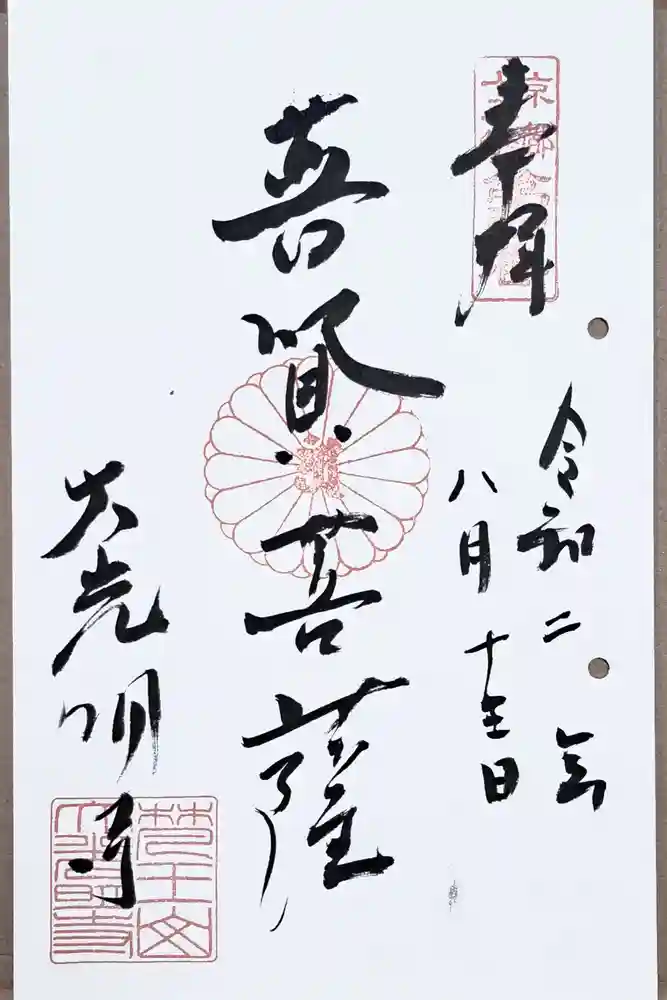 奉拝
令和二年
八月十五日
普賢菩薩
大光明寺
京都
大光明寺